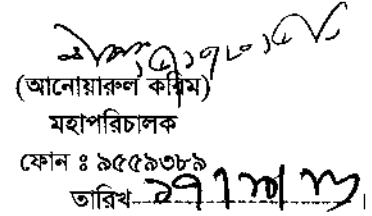 (আনোয়ারুল করিম)
মহাপরিচালক
ফোন ঃ ৯৫৫৯৩৮৯
তারিখ